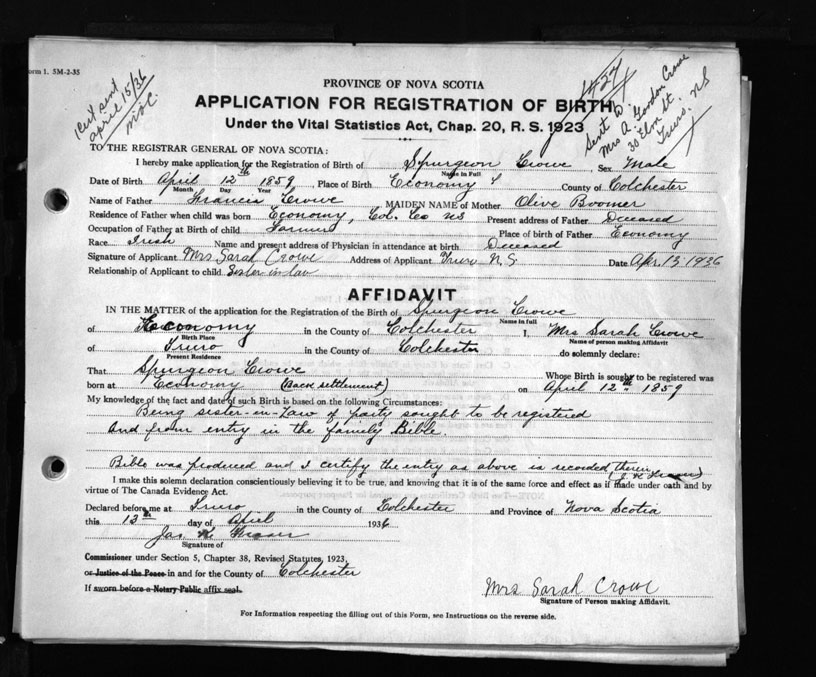 Form 1. 5M-2-35
1 Cert sent
april 15/36
1427
Sent to
Mrs A. Gordon Crowe
30 Elm St.
Truro. NS
PROVINCE OF NOVA SCOTIA
APPLICATION FOR REGISTRATION OF BIRTH
Under the Vital Statistics Act, Chap. 20, R. S. 1923
TO THE REGISTRAR GENERAL OF NOVA SCOTIA:
I hereby make application for the Registration of Birth of Spurgeon Crowe Sex Male
Name in Full
Date of Birth April 12th 1859 Place of Birth Economy County of Colchester
Month Day Year
Name of Father Francis Crowe MAIDEN NAME of Mother Olive Boomer
Residence of Father when child was born Economy, Col. Co NS Present address of Father Deceased
Occupation of Father at Birth of child Farmer Place of birth of Father Economy
Race Irish Name and present address of Physician in attendance at birth Deceased
Signature of Applicant Mrs Sarah Crowe Address of Applicant Truro N.S. Date Apr. 13, 1936
Relationship of Applicant to child Sister in law
AFFIDAVIT
IN THE MATTER of the application for the Registration of the Birth of Spurgeon Crowe
Name in full
of Economy in the County of Colchester I, Mrs Sarah Crowe
Birth Place Name of person making Affidavit
of Truro in the County of Colchester do solemnly declare:
Present Residence
That Spurgeon Crowe Whose Birth is sought to be registered was
born at Economy (Back settlement) on April 12th 1859
My knowledge of the fact and date of such Birth is based on the following Circumstances:
Being sister-in-Law of party sought to be registered
And from entry in the family Bible.
Bible was produced and I certify the entry as above is recorded therein
I make this solemn declaration conscientiously believing it to be true, and knowing that it is of the same force and effect as if made under oath and by
virtue of The Canada Evidence Act.
Declared before me at Truro in the County of Colchester and Province of Nova Scotia
this 13th day of April 1936
Jas
Signature of
Commissioner under Section 5, Chapter 38, Revised Statutes, 1923,
or Justice of the Peace in and for the County of Colchester
If sworn before a Notary Public affix seal.
Mrs Sarah Crowe
Signature of Person making Affidavit.
For Information respecting the filling out of this Form, see Instructions on the reverse side.